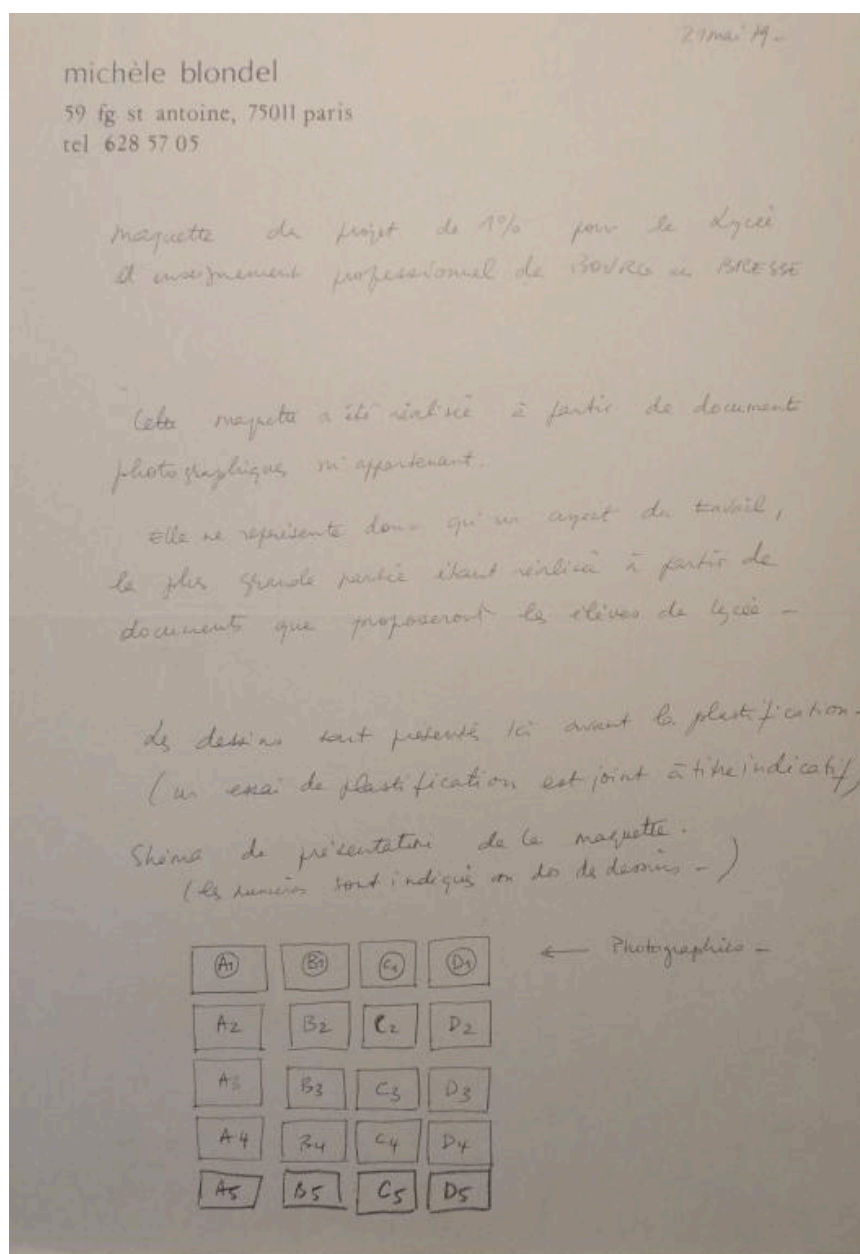 21 mai 79 -
michèle blondel
59 fg st antoine, 75011 paris
tel 628 57 05
maquette du projet de 1% pour le Lycée
d'enseignement professionnel de BOURG en BRESSE
Cette maquette a été réalisée à partir de documents
photographiques m'appartenant.
Elle ne représente donc qu'un aspect du travail,
la plus grande partie étant réalisée à partir de
documents que proposeront les élèves du lycée -
Les dessins sont présentés ici avant la plastification.
(un essai de plastification est joint à titre indicatif)
Shéma de présentation de la maquette.
(les numéros sont indiqués au dos des dessins -)
A1 B1 C1 D1 ← Photographies -
A2 B2 C2 D2
A3 B3 C3 D3
A4 B4 C4 D4
A5 B5 C5 D5